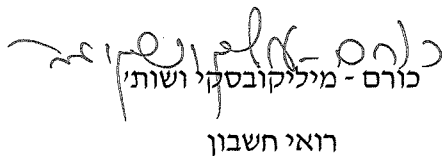 כורם - מיליקובסקי ושות'
רואי חשבון